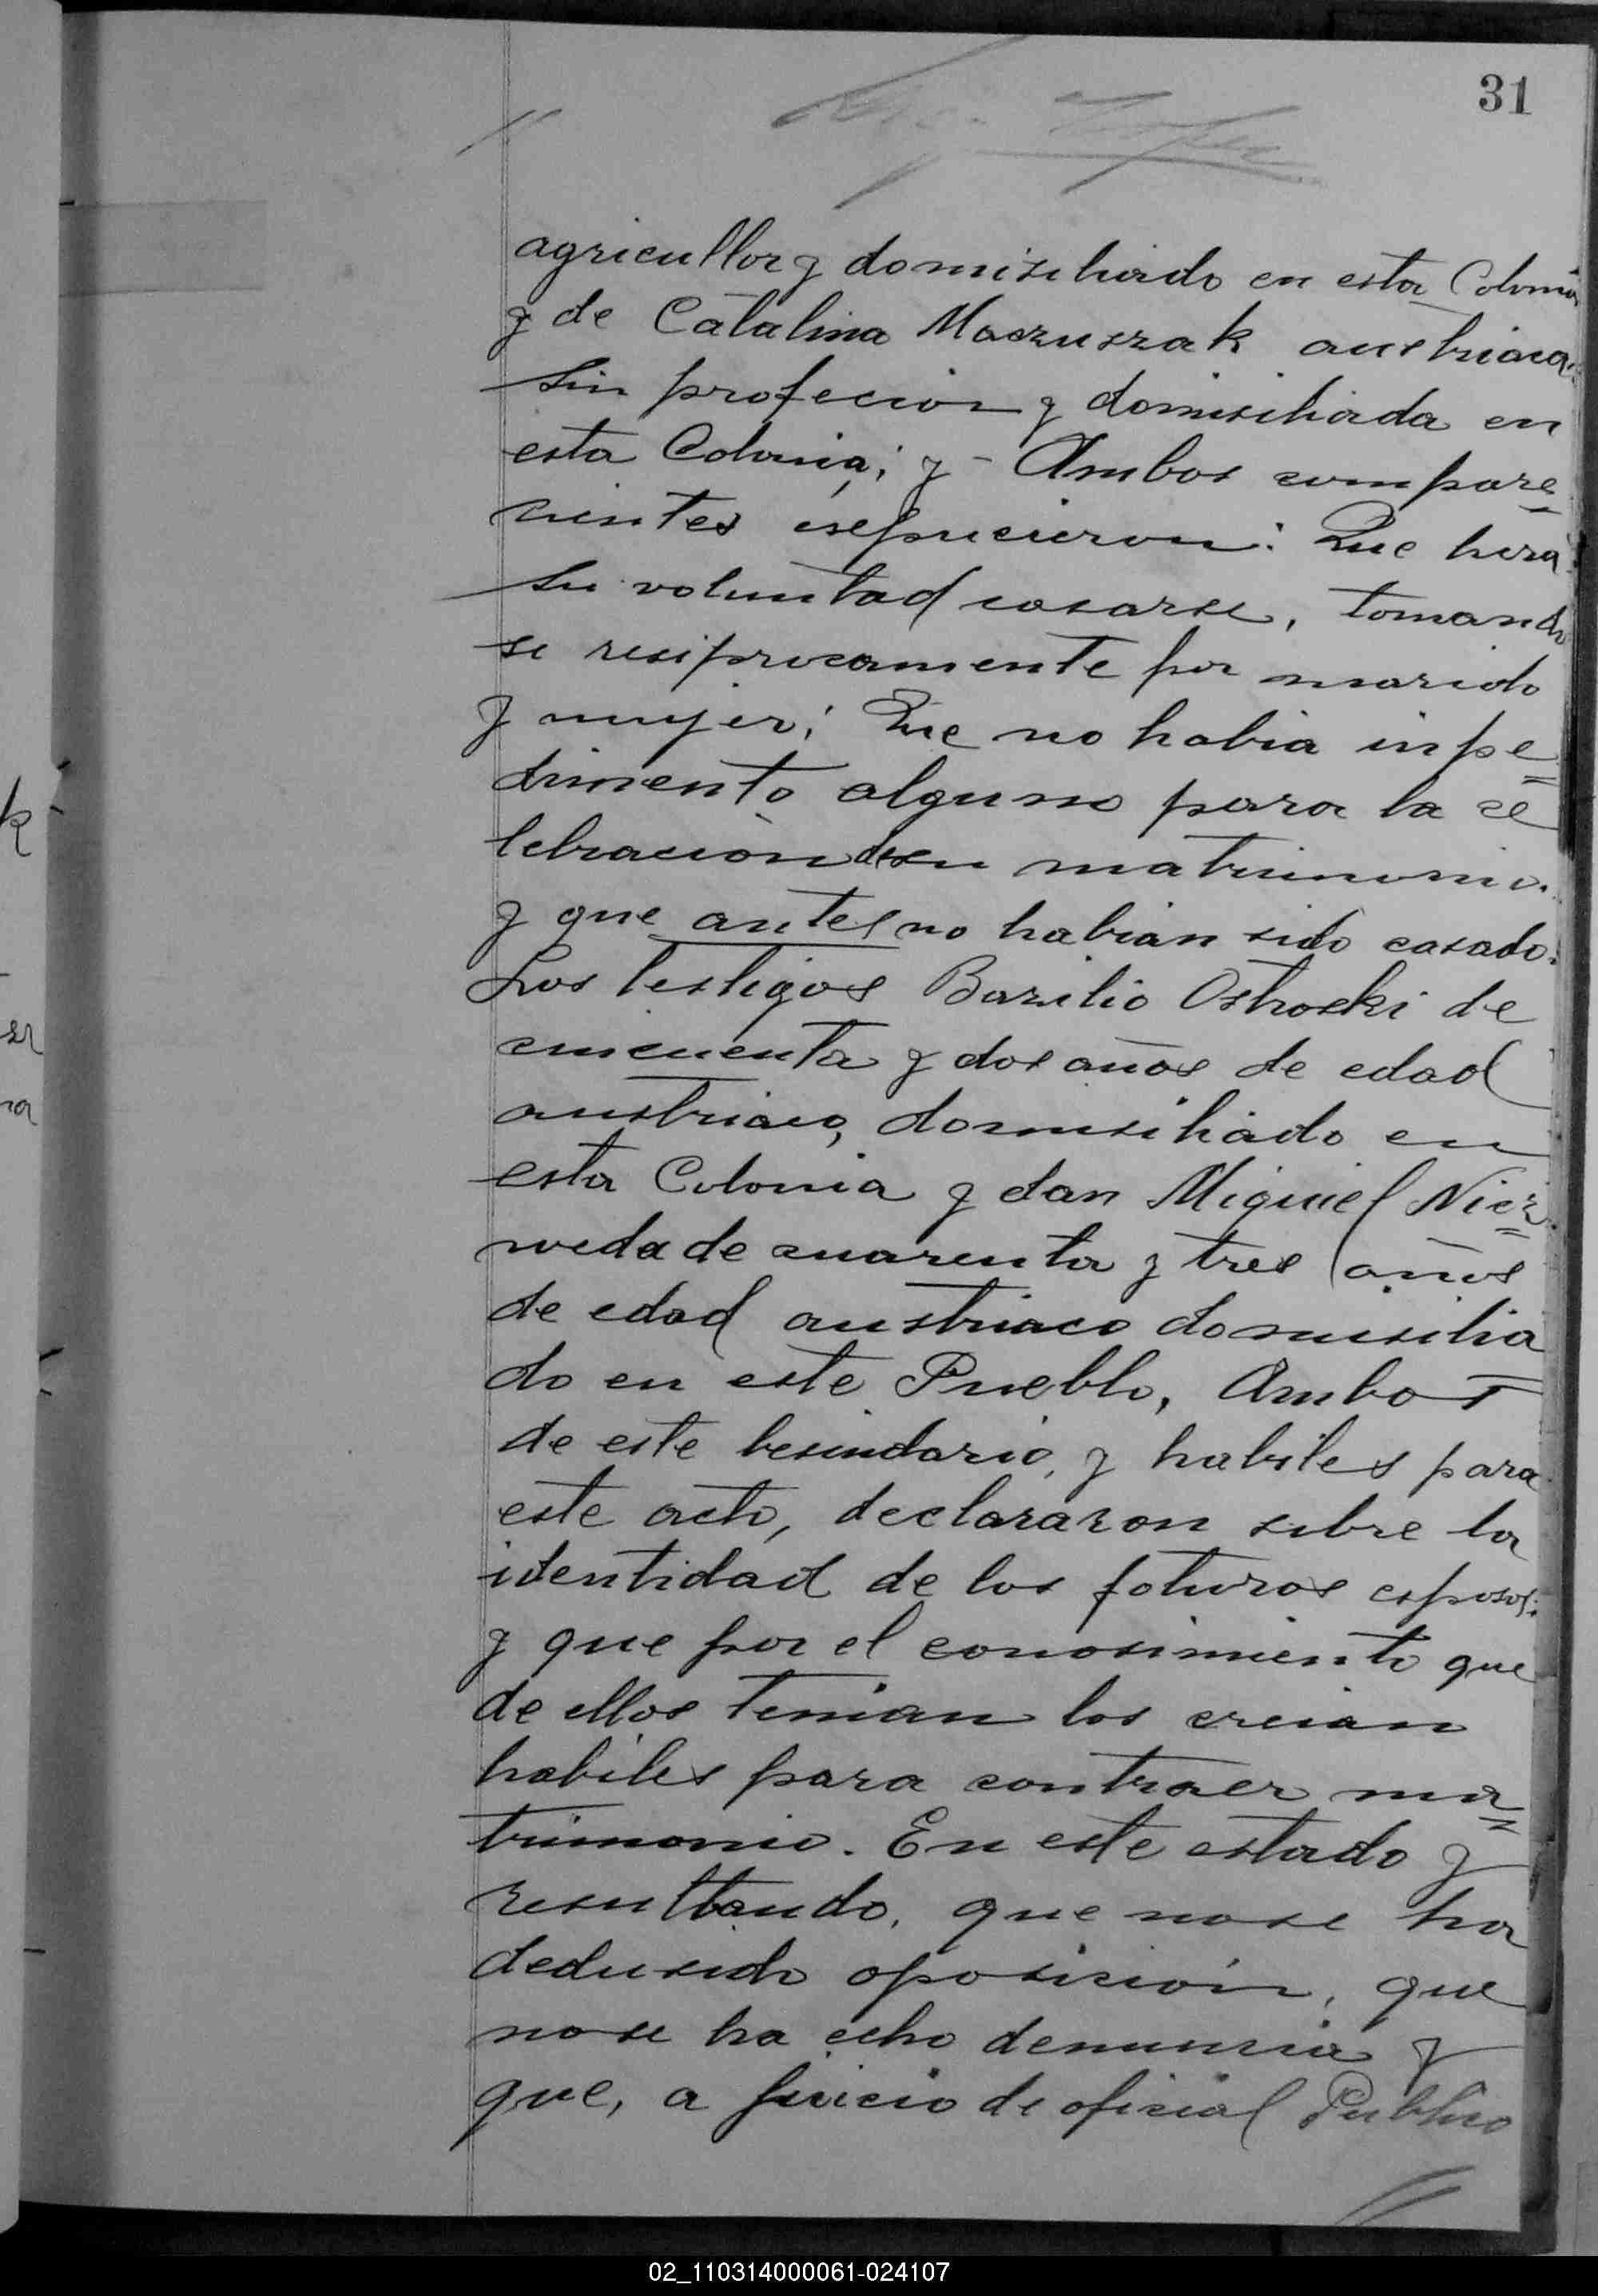 31
agricultor y domisiliado en esta Colonia
y de Catalina Maczuszak austriaca
sin profecion y domisiliada en
esta Colonia; y Ambos compare
cientes espucieron: Que hera
su voluntad casarse, tomando
se resiprocamente por marido
y mujer; Que no habia inpe=
dimento alguno para la ce
lebracion de su matrimonio.
y que antes no habian sido casado.
Los testigos Bazilio Ostroski de
cincuenta y dos años de edad
austriaco, domisiliado en
esta Colonia y don Miguel Niez=
weda de cuarenta y tres años
de edad austriaco domisilia
do en este Pueblo, Ambos
de este besindario, y habiles para
este acto, declararon sobre la
identidad de los foturos esposos;
y que por el conosimiento que
de ellos tenian los creian
habiles para contraer ma=
trimonio. En este estado y
resultando, que no se ha
dedusido oposision, que
no se ha echo denunsia y
que, a juicio de ofisial Publico
02_110314000061-024107